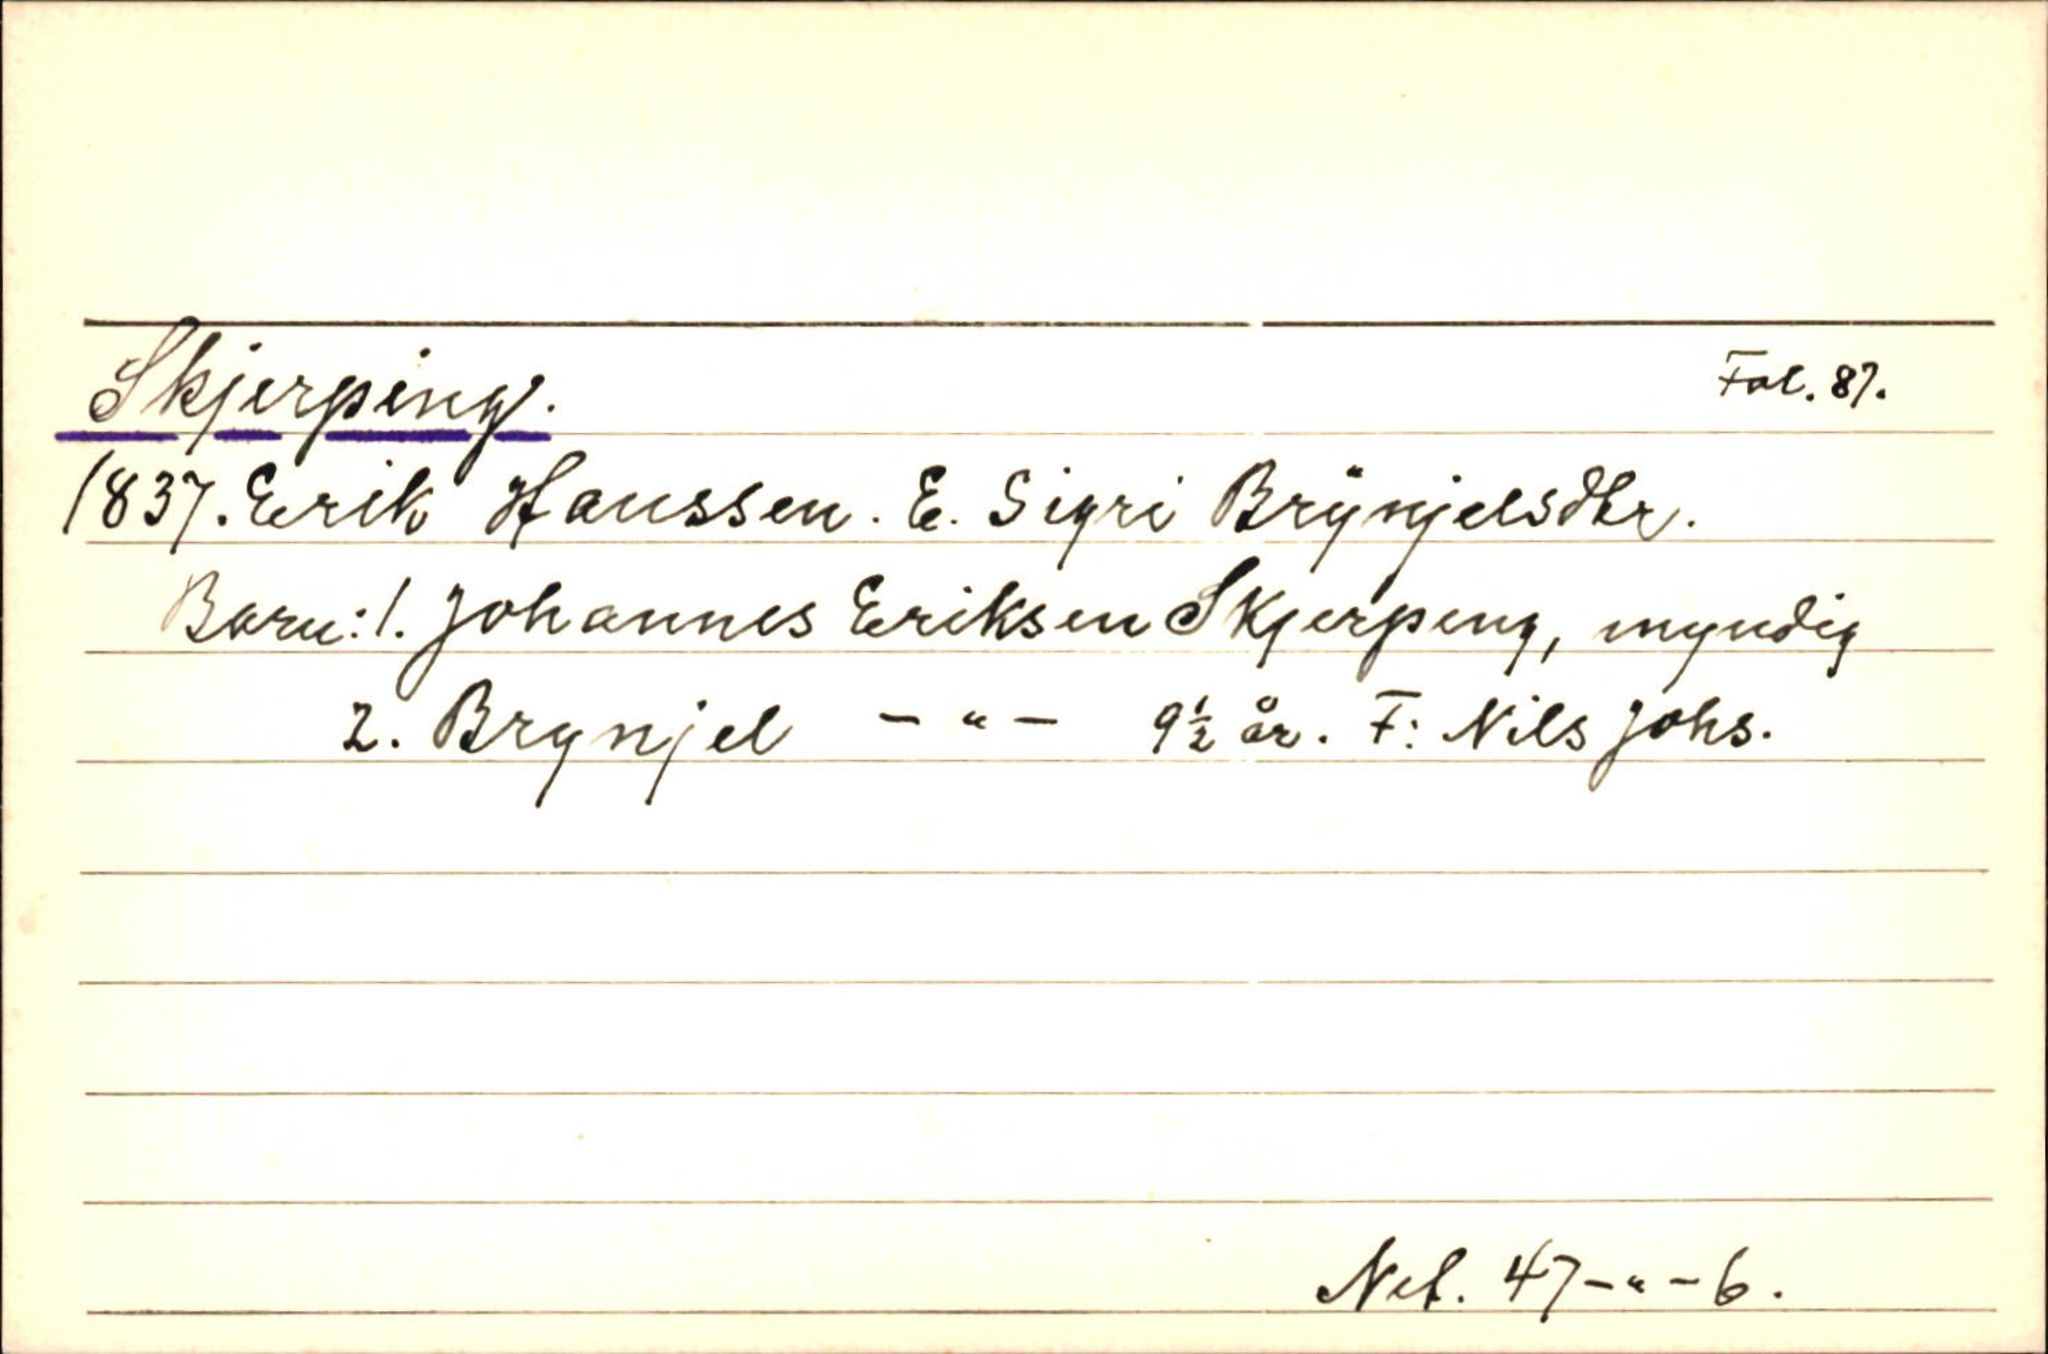 Skjerping. Fol. 87.
1837. Erik Hanssen. E. Sigri Brÿnjelsdtr.
Born: 1. Johannes Eriksen Skjerping, myndig
2. Brynjel - " - 9½ år. F: Nils Johs.
Net. 47-"-6.